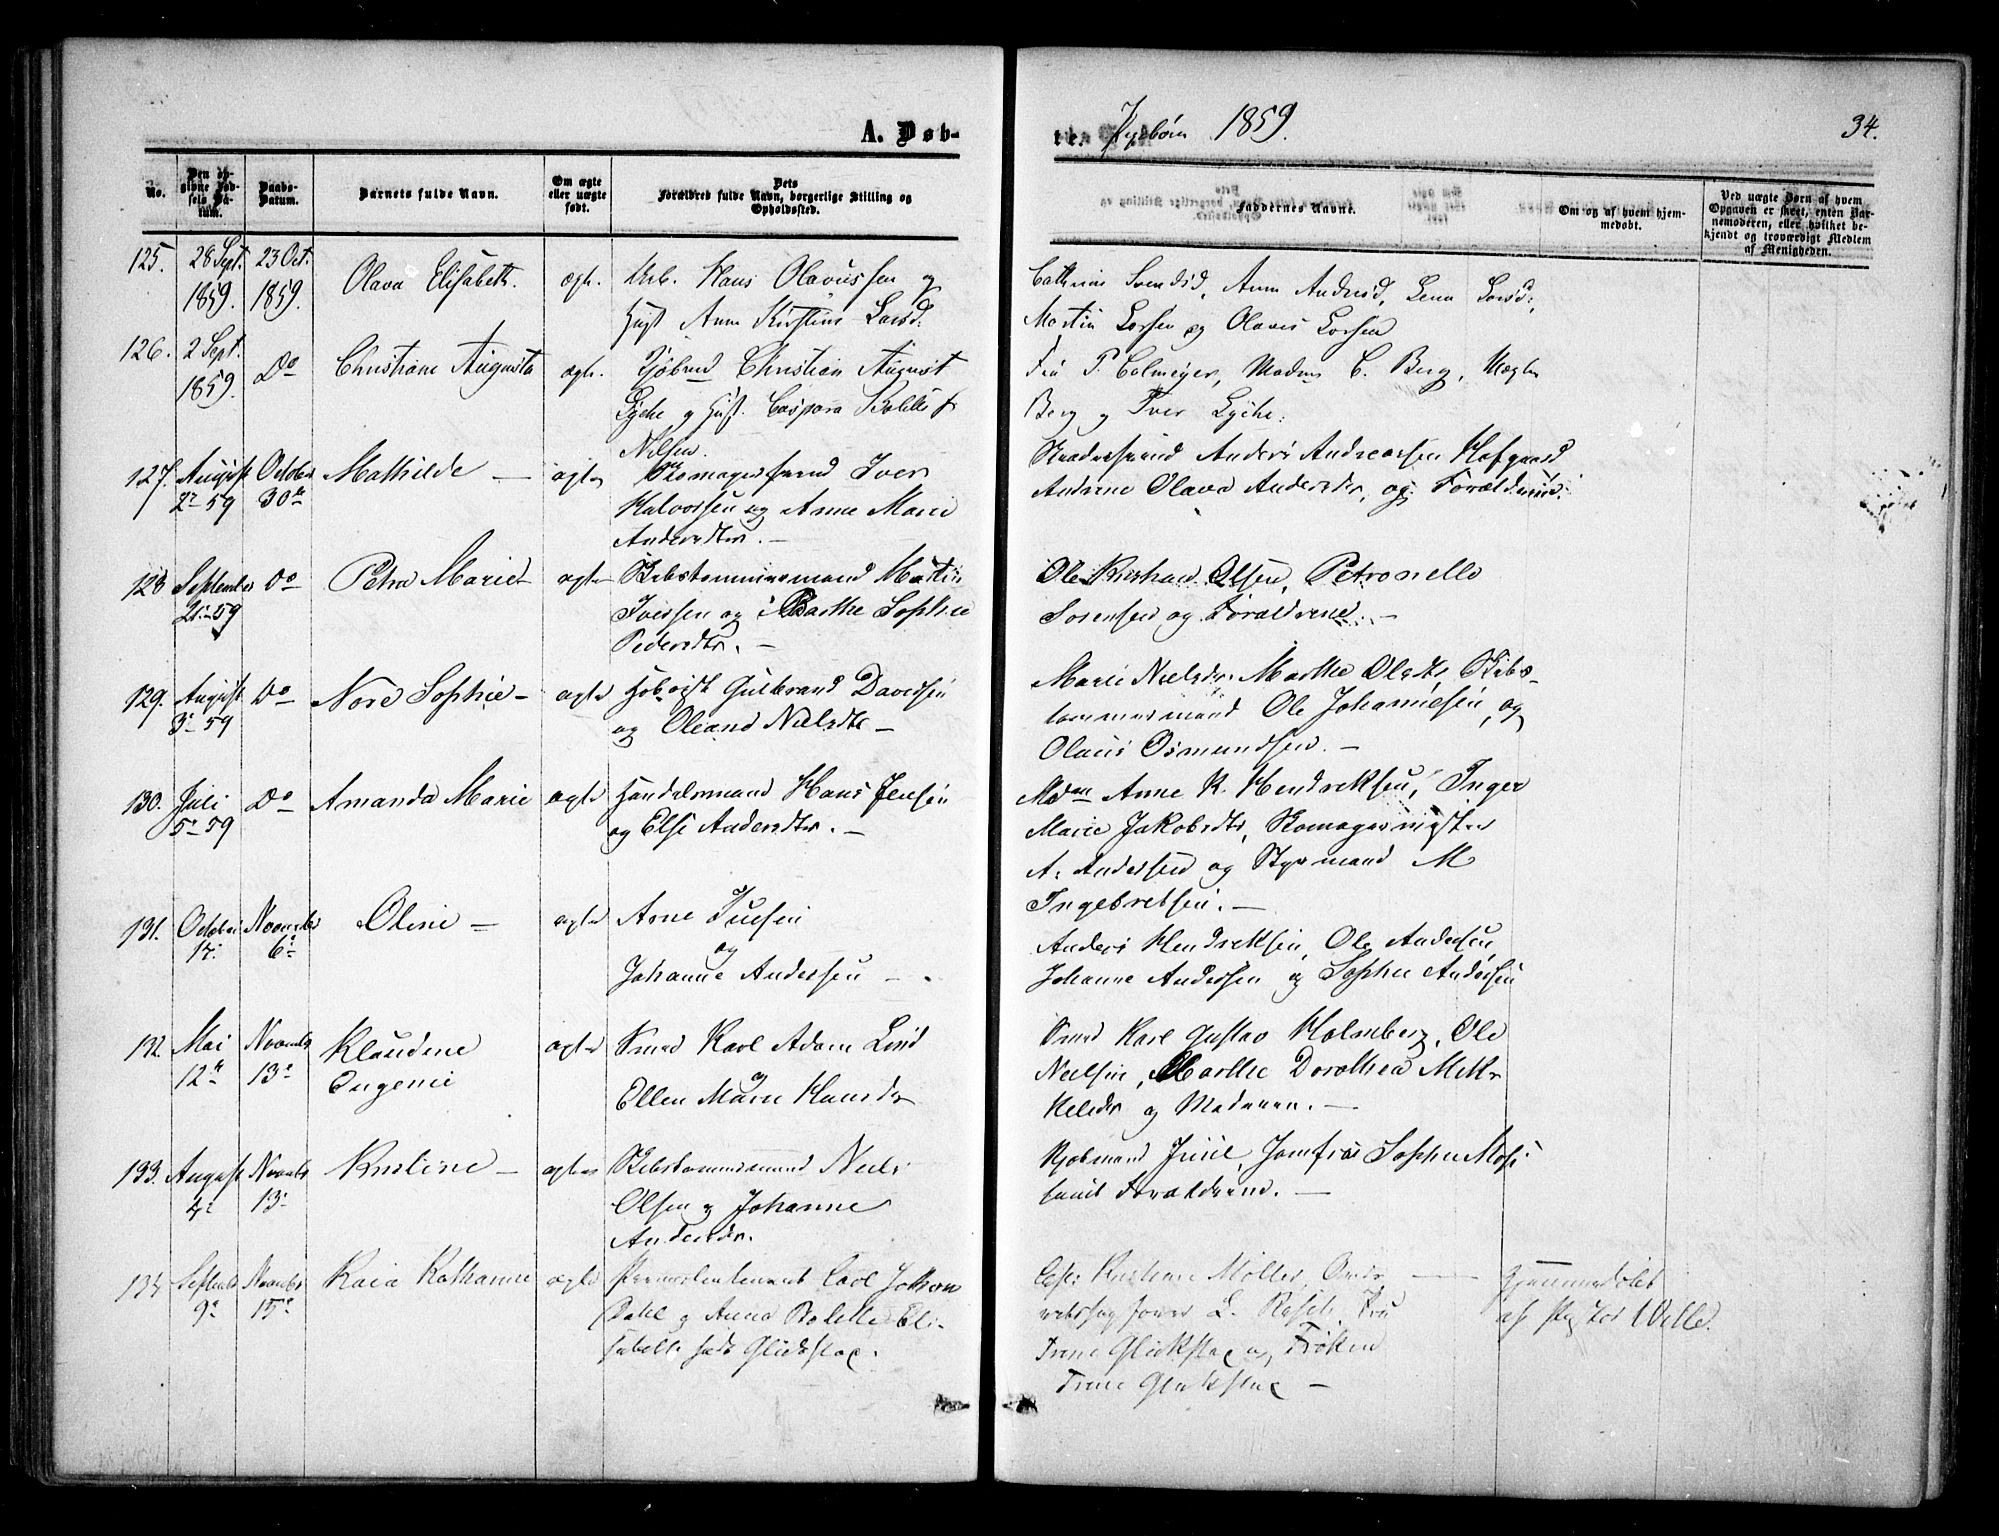 A. Døb-
te. Pigebørn 1859.
34.
No.
Den op-
givne Fød-
sels Da-
tum.
Daabs-
Datum.
Barnets fulde Navn.
Om ægte
eller uægte
født.
Dets
Forældres fulde Navn, borgerlige Stilling og
Opholdssted.
Faddernes Navne.
Om og af hvem hjem-
medøbt.
Ved uægte Børn af hvem
Opgaven er skeet, enten Bar-
nemoderen, eller hvilket be-
kjendt og troværdigt Medlem
af Menigheden.
125.
28 Sept.
1859.
23 Oct.
1859.
Olava Elisabeth.
ægte.
Arb. Hans Olavussen og
Hust. Anne Kirstine Larsd.
Cathrine Svendsd, Anne Andersd, Lena Larsd.
Martin Larsen og Olaves Larsen
126.
2 Sept.
1859.
Do
Christiane Augusta
ægte.
Christian August
Lyche og Hust. Caspara Bolette f
Nilsen.
Fru P. Colmeyer, Madam C. Berg, Mægler
Berg og Iver Lyche.
127.
August
2n 59
October
30te
Mathilde —
ægte
Skomagersvend Iver
Halvorsen og Anne Marie
Andersdtr. —
Anders Andreassen Hofgaard
Andrine Olava Andersdtr, og Forældrene.
128
September
21n 59
Do
Petra Marie
ægte
Skibstømmermand Martin
Iversen og Marthe Sophie
Pedersdtr. —
Ole Kristian Olsen, Petronelle
Sørensen og Forældrene. —
129.
August
3n 59
Do
Nore Sophie —
ægte
Gulbrand Davidsen
og Oleane Nielsdtr —
Marie Nielsdtr Marthe Olsdtr, Skibs-
tømmermand Ole Johannesen, og
Olaus Osmundsen. —
130.
Juli
5n 59
Do
Amanda Marie
ægte
Handelsmand Hans Jensen
og Else Andersdtr. —
Mdm Anne K. Hendriksen, Inger
Marie Jakobsdtr, Skomagermester
A. Andersen og Styrmand M
Ingebretsen. —
131.
October
14.
November
6n
Oline —
ægte
Arne Tuesen
og
Johanne Andersen —
Anders Hendriksen, Ole Andersen,
Johanne Andersen og Sophie Andersen
132
Mai
12te
November
13n
Klaudine
Eugenie
ægte
Smed Karl Adam Lind
og
Ellen Marie Hansdtr
Smed Karl Gustav Holmberg, Ole
Nielsen, Marthe Dorothea Mik-
kelsdtr og Moderen. —
133.
August
4n
November
13n
Kristine —
ægte
Skibstømmermand Niels
Olsen og Johanne
Andersdtr.
Kjøbmand Juul, Jomfru Sophie Moss
samt Forældrene. —
134
September
9n
November
15n
Kaia Kathrine
ægte
Premierleutenant Carl Johan
Dahl og Anna Bolette Eli-
sabeth født Glückstad.
Kristiane Møller,
Fru
Trine Glückstad og Frøken
Trine Glückstad —
Hjemmedøbt
af Pastor Wille.